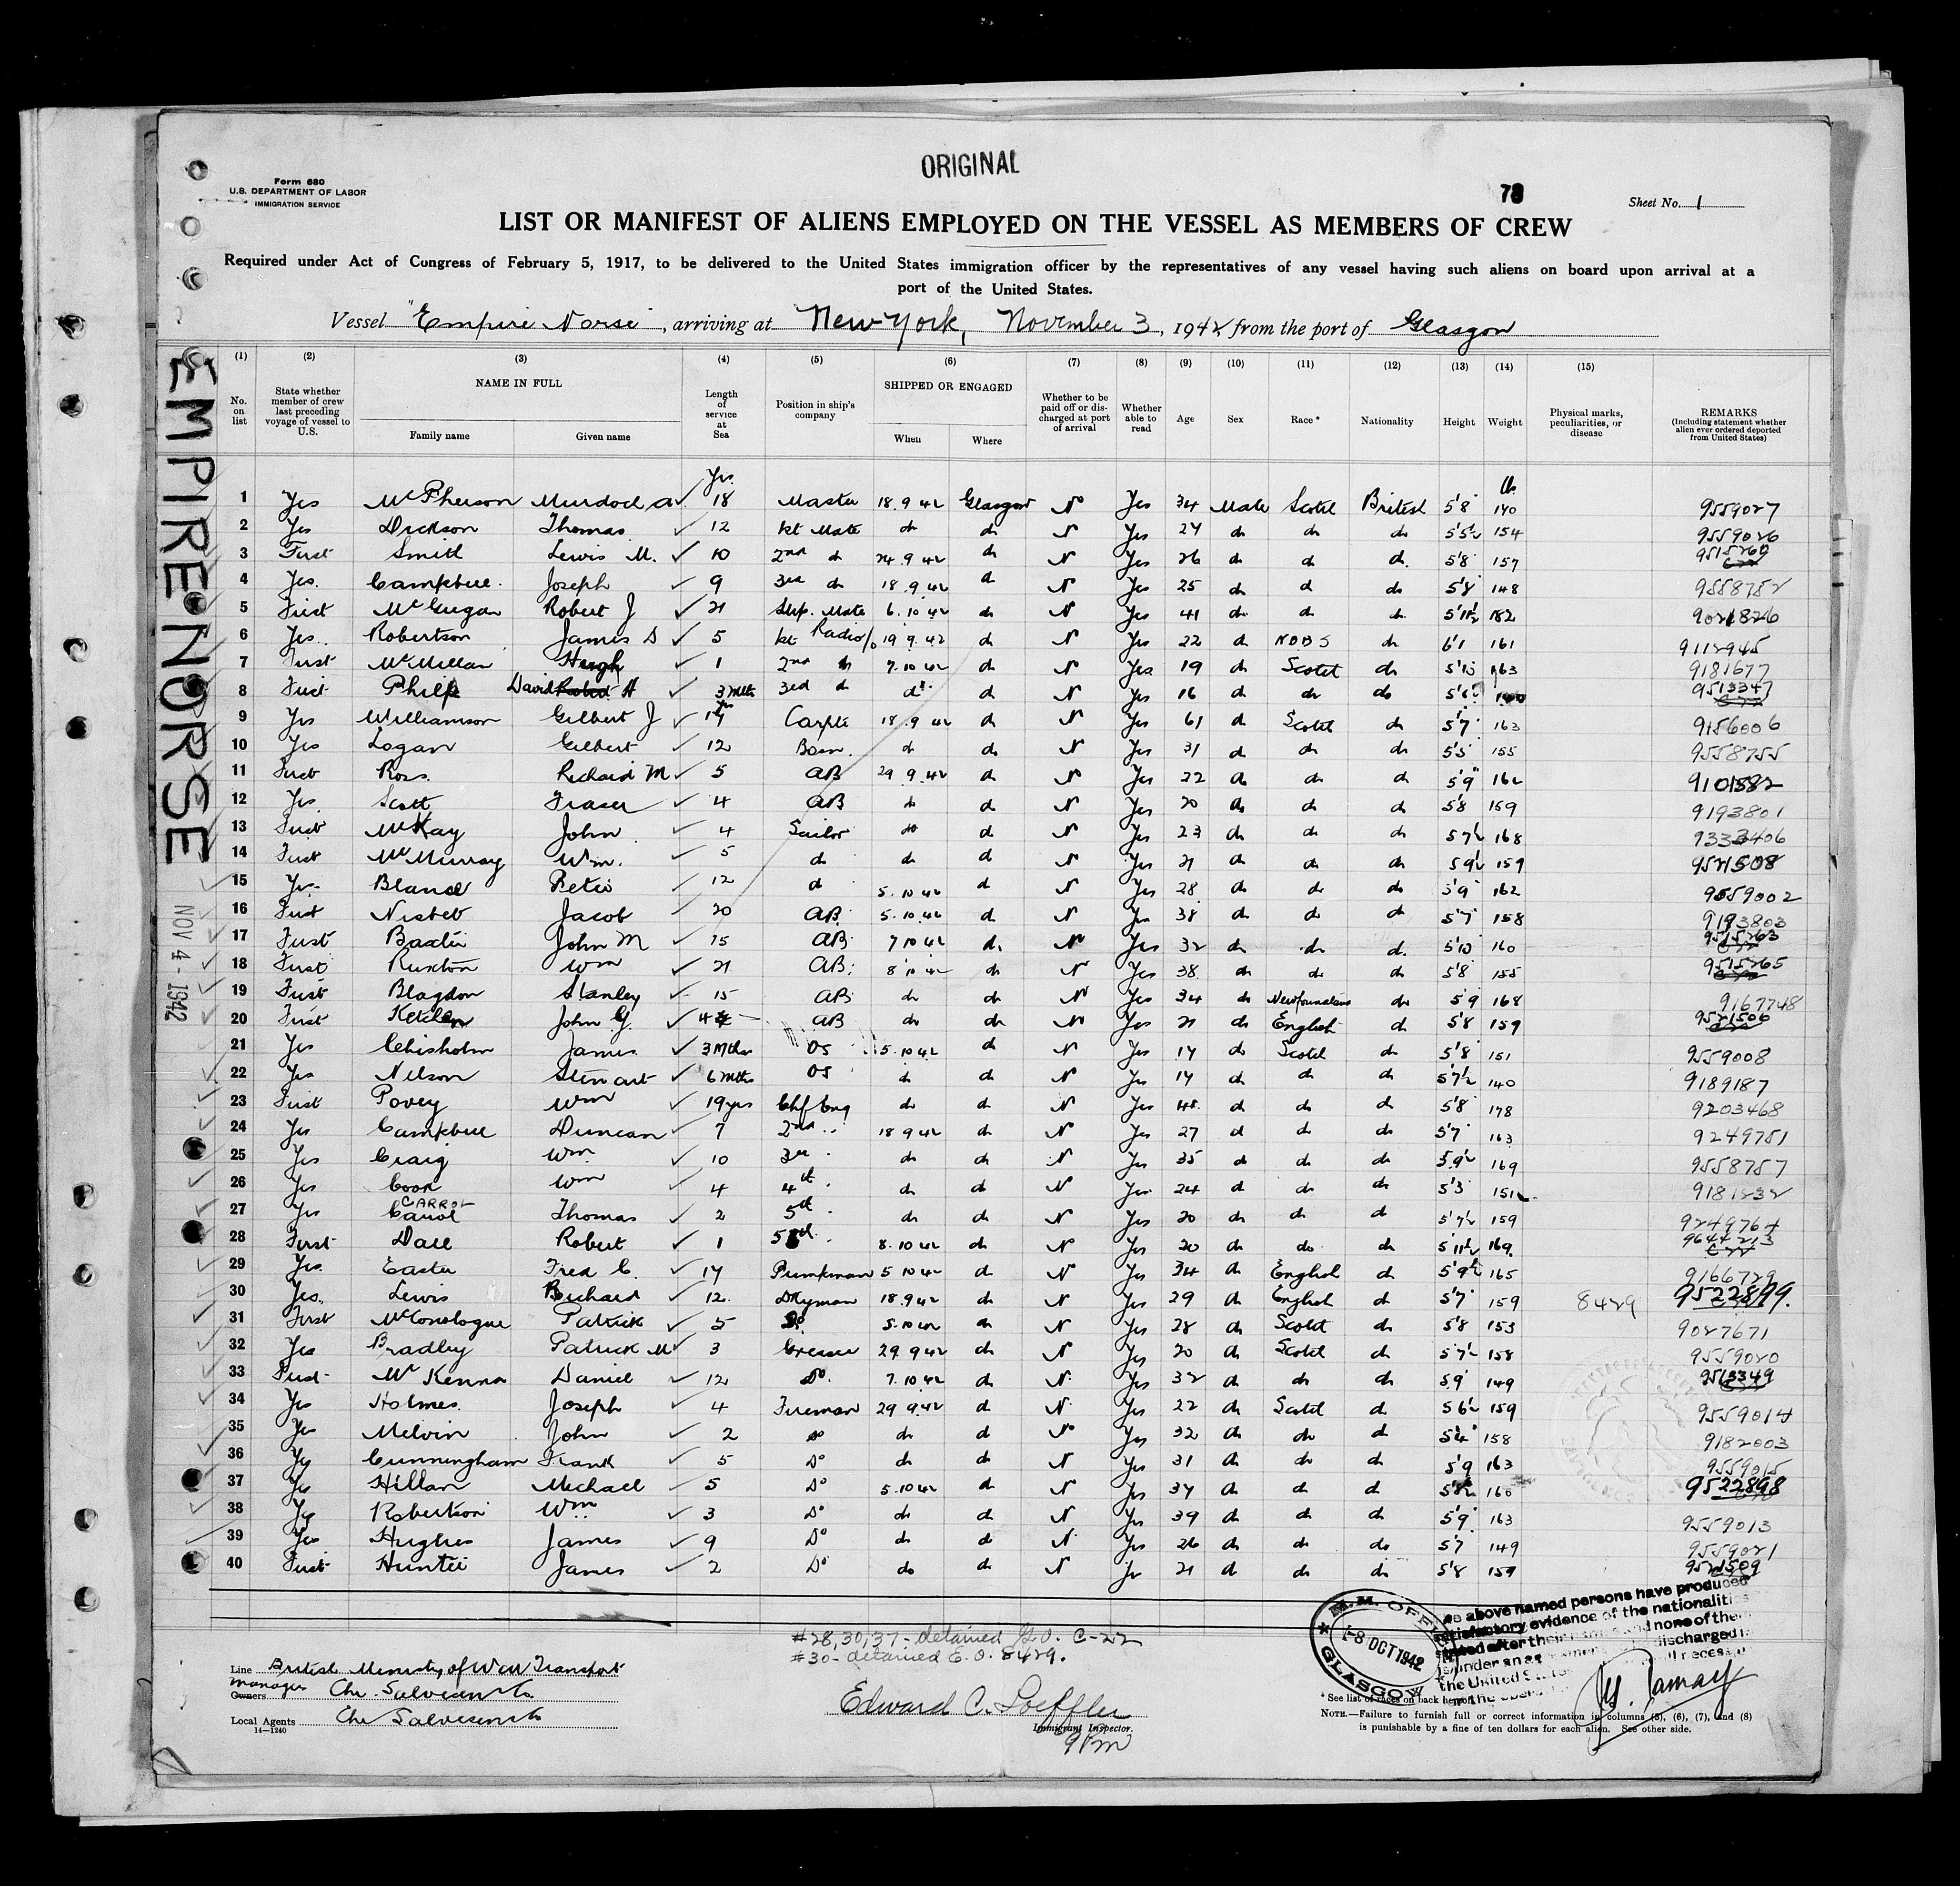 ORIGINAL
Form 680
U.S. DEPARTMENT OF LABOR
IMMIGRATION SERVICE
78
Sheet No. 1
LIST OR MANIFEST OF ALIENS EMPLOYED ON THE VESSEL AS MEMBERS OF CREW
Required under Act of Congress of February 5, 1917, to be delivered to the United States immigration officer by the representatives of any vessel having such aliens on board upon arrival at a
port of the United States.
Vessel "Empire Norse", arriving at New York, November 3, 1942 from the port of Glasgow
EMPIRE NORSE
NOV 4 - 1942
(1) (2) (3) (4) (5) (6) (7) (8) (9) (10) (11) (12) (13) (14) (15)
No. on list
State whether member of crew last preceding voyage of vessel to U.S.
NAME IN FULL
Family name Given name
Length of service at Sea
Position in ship's company
SHIPPED OR ENGAGED
When Where
Whether to be paid off or discharged at port of arrival
Whether able to read
Age Sex Race* Nationality Height Weight
Physical marks, peculiarities, or disease
REMARKS
(Including statement whether alien ever ordered deported from United States)
Yrs. lb.
1 Yes McPherson Murdoch A 18 Master 18.9.42 Glasgow N Yes 34 Male Scotch British 5'8" 140 9559027
2 Yes Dickson Thomas 12 1st Mate do do N Yes 27 do do do 5'5½ 154 9559026
3 First Smith Lewis M. 10 2nd do 24.9.42 do N Yes 26 do do do 5'8 157 9515260
4 Yes Campbell Joseph 9 3rd do 18.9.42 do N Yes 25 do do do 5'8 148 9558752
5 First McGugan Robert J 21 Sup. Mate 6.10.42 do N Yes 41 do do do 5'11½ 182 9021826
6 Yes Robertson James D 5 1st Radio/o 19.9.42 do N Yes 22 do NOBS do 6'1 161 9112945
7 First McMillan Hugh 1 2nd do 7.10.42 do N Yes 19 do Scotch do 5'10 163 9181677
8 First Philp David H 3 mths 3rd do do do N Yes 16 do do do 5'6 9513347
9 Yes Williamson Gilbert J Carptr 18.9.42 do N Yes 61 do Scotch do 5'7 163 9156006
10 Yes Logan Gilbert 12 Bosn. do do N Yes 31 do do do 5'5 155 9558755
11 First Ross Richard M 5 AB 29.9.42 do N Yes 22 do do do 5'9" 162 9101582
12 Yes Scott Fraser 4 AB do do N Yes 20 do do do 5'8 159 9193801
13 First McKay John 4 Sailor do do N Yes 23 do do do 5 7½ 168 9333406
14 First McMurray Wm. 5 do do do N Yes 21 do do do 5 9½ 159 9521508
15 Yes Bland Peter 12 do 5.10.42 do N Yes 28 do do do 5'9 162 9559002
16 First Nisbet Jacob 20 AB 5.10.42 do N Yes 38 do do do 5'7 158 9193803
17 First Baxter John M 15 AB 7.10.42 do N Yes 32 do do do 5'10 160 9515263
18 First Ruxton Wm 21 AB 8.10.42 do N Yes 38 do do do 5'8 155 9515265
19 First Blagdon Stanley 15 AB do do N Yes 34 do Newfoundland do 5'9 168 9167748
20 First Ketchen John G. 4 AB do do N Yes 21 do English do 5'8 159 9521506
21 Yes Chisholm James 3 Mths OS 5.10.42 do N Yes 17 do Scotch do 5'8 151 9559008
22 Yes Nelson Stewart 6 mths OS do do N Yes 17 do do do 5'7½ 140 9189187
23 First Povey Wm 19 yrs Chf Eng do do N Yes 41 do do do 5'8 178 9203468
24 Yes Campbell Duncan 7 2nd " 18.9.42 do N Yes 27 do do do 5'7 163 9249751
25 Yes Craig Wm 10 3rd do do N Yes 35 do do do 5.9½ 169 9558757
26 Yes Cook Wm 4 4th do do N Yes 24 do do do 5'3 151 9181232
27 Yes Carrol CARROL Thomas 2 5th do do N Yes 20 do do do 5'7½ 159 9249764
28 First Dall Robert 1 5th 8.10.42 do N Yes 20 do do do 5'11½ 169 9644213
29 Yes Easter Fred C. 17 Pumpman 5.10.42 do N Yes 34 do English do 5'9½ 165 9166729
30 Yes Lewis Richard 12 Dkyman 18.9.42 do N Yes 29 do English do 5'7 159 8429 9522899.
31 First McConologue Patrick 5 Do 5.10.42 do N Yes 28 do Scotch do 5'8 153 9027671
32 Yes Bradley Patrick M 3 Greaser 29.9.42 do N Yes 20 do Scotch do 5 7½ 158 9559020
33 First McKenna Daniel 12 Do 7.10.42 do N Yes 32 do do do 5.9 149 9513349
34 Yes Holmes Joseph 4 Fireman 29.9.42 do N Yes 22 do Scotch do 5 6½ 159 9559014
35 Yes Melvin John 2 Do do do N Yes 32 do do do 5'4 158 9182003
36 Yes Cunningham Frank 5 Do do do N Yes 31 do do do 5'9 163 9559015
37 Yes Hillan Michael 5 Do 5.10.42 do N Yes 37 do do do 5'8½ 160 9522898
38 Yes Robertson Wm 3 Do do do N Yes 39 do do do 5'9 163 9559013
39 Yes Hughes James 9 Do do do N Yes 26 do do do 5'7 149 9559021
40 First Hunter James 2 Do do do N Yes 21 do do do 5'8 159 9521509
#28,30,37 - detained G.O. C-22
#30 - detained E.O. 8429.
Line British Ministry of War Transport
managers Owners Chr. Salvesen & Co
Local Agents Chr Salvesen & Co
14—1240
Edward C. Loeffler
Immigrant Inspector.
M.M. OFFICE
-8 OCT 1942
GLASGOW
above named persons have produced
satisfactory evidence of the nationalities
stated after their names and none of them
discharged
under an
the United States
* See list of races on back hereof.
NOTE.—Failure to furnish full or correct information in columns (3), (6), (7), and (8)
is punishable by a fine of ten dollars for each alien. See other side.